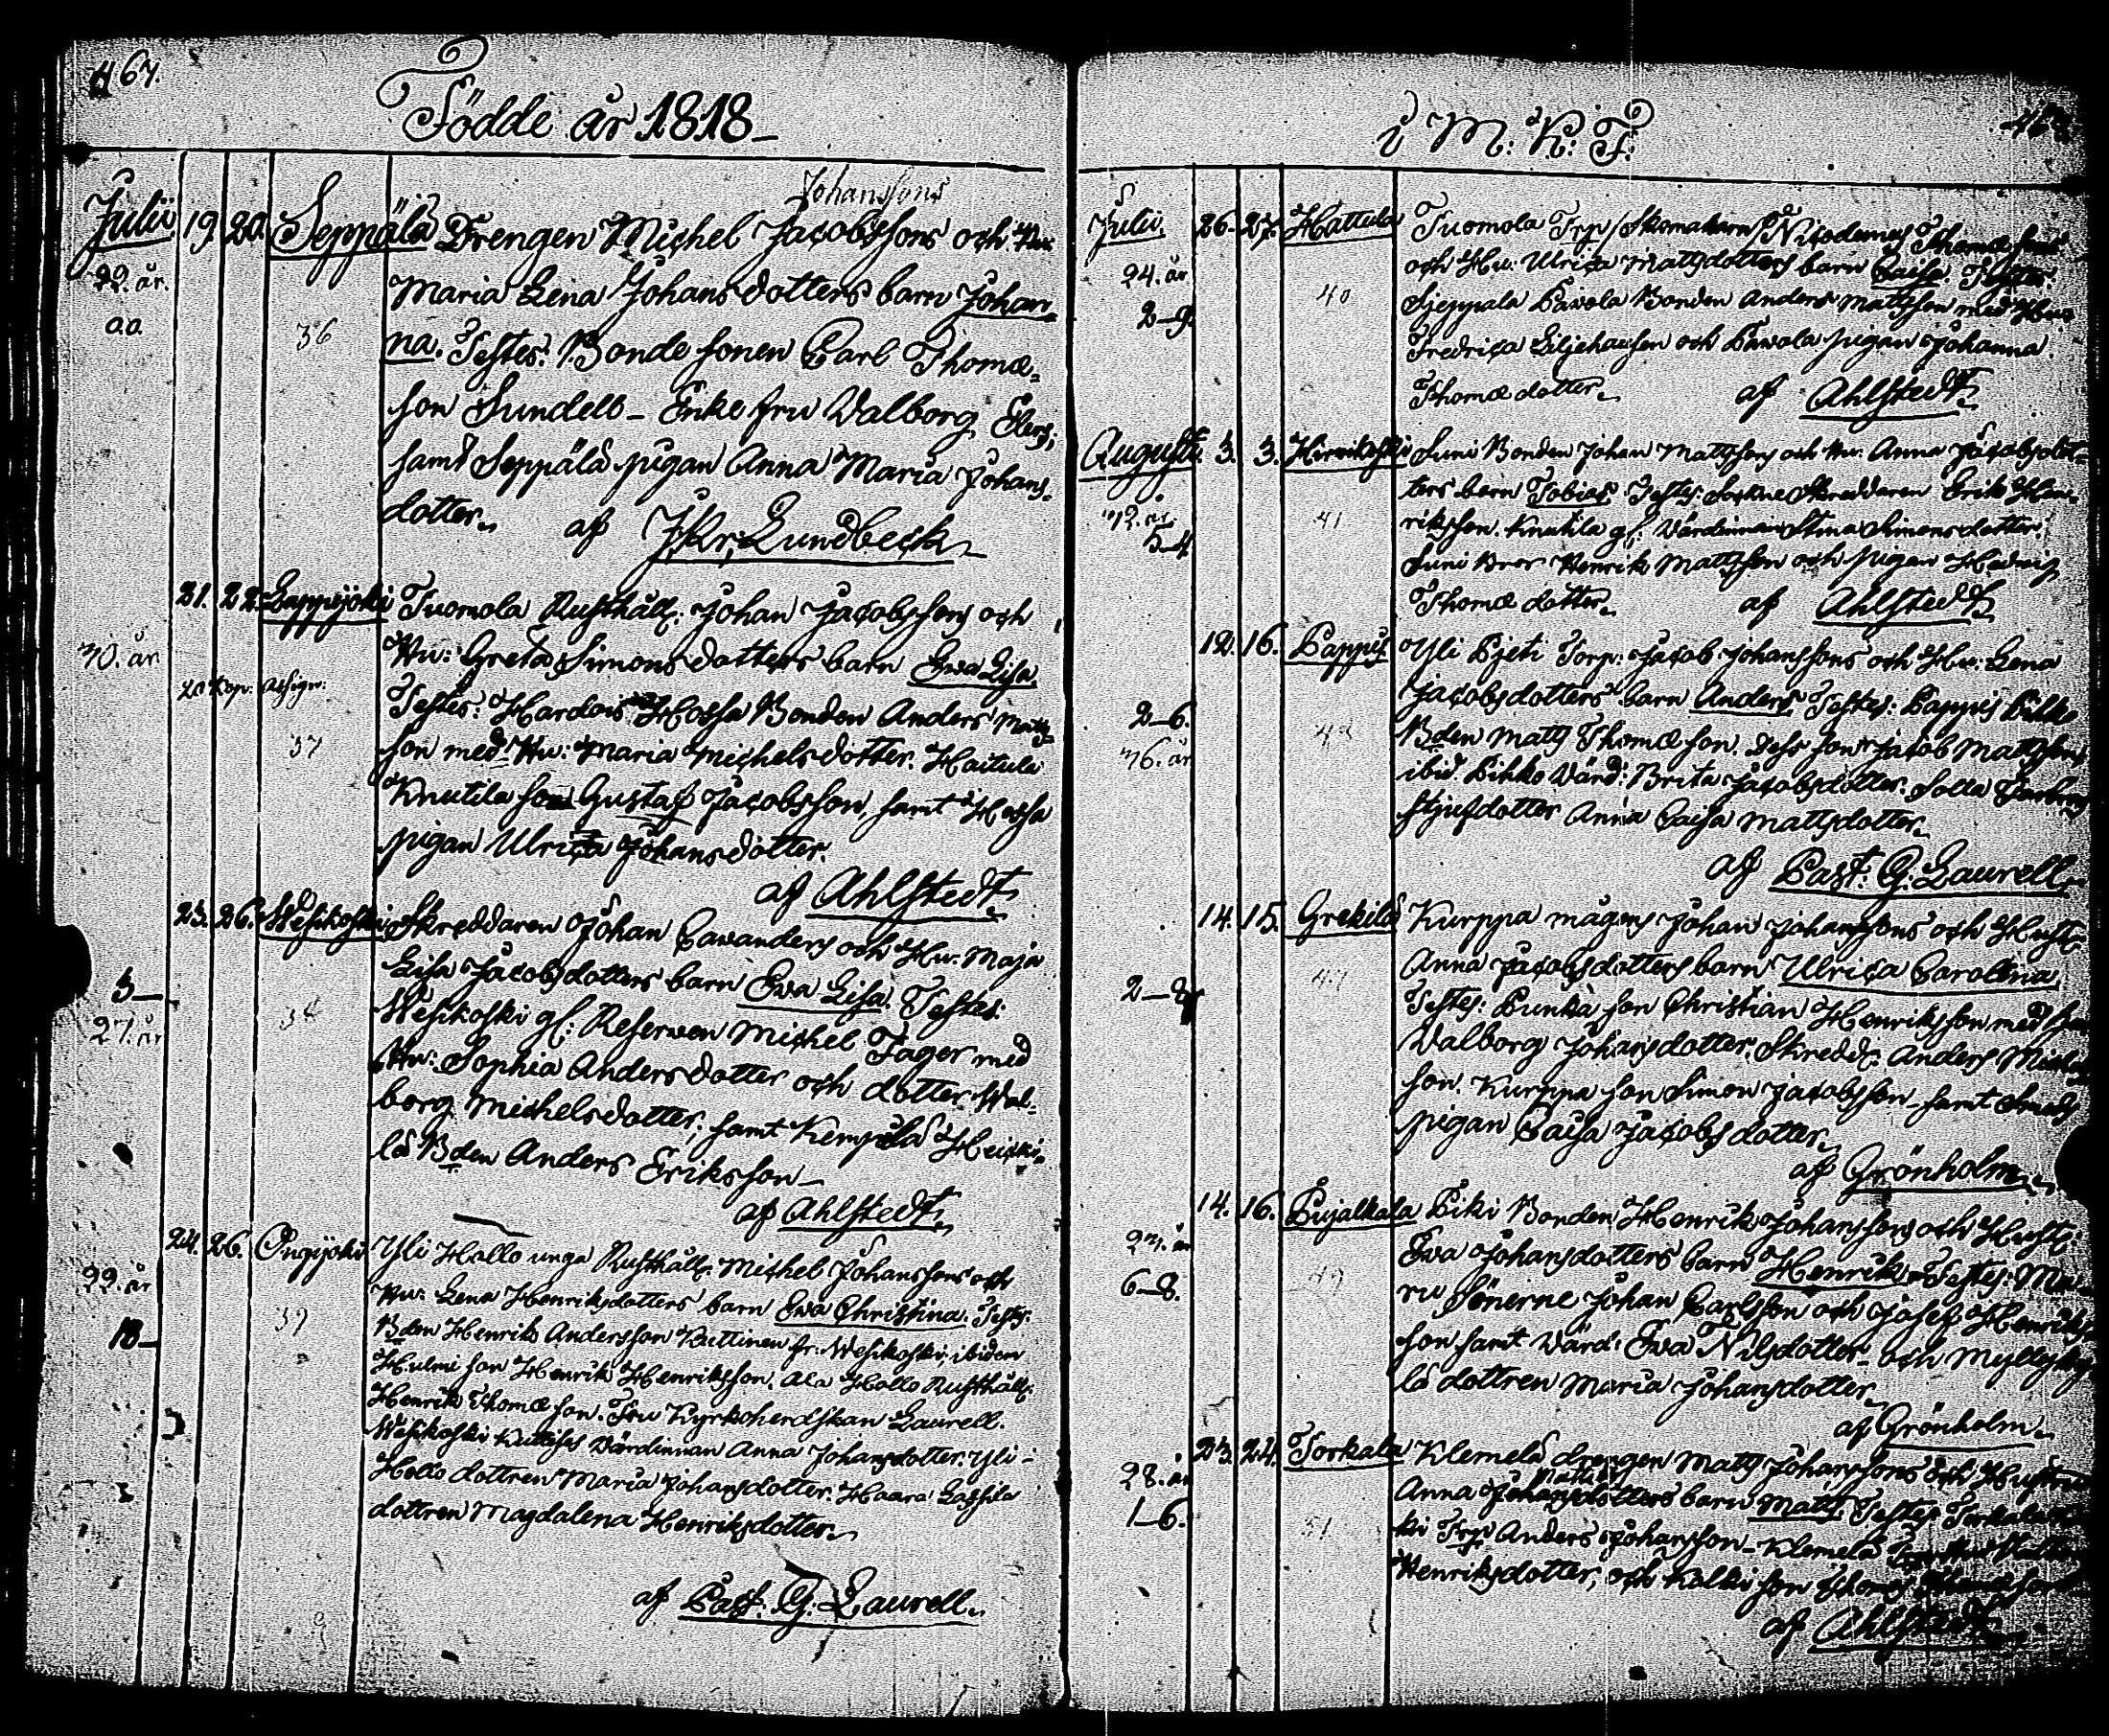 467.
Födde år 1818
Julii 19. 20. Seppälä Drengen Michel Jacobssons och Hu:
Johanssons
22. år. Maria Lena Johansdotters barn Johan
36 na. Testes: Bonde sonen Carl Thomæ
son Sundell Enke fru Valborg
samt Seppälä pigan Anna Maria Johans
dotter. af J. Kr. Lundbeck
21. 22. Lappijoki Tuomola Rusthåll: Johan Jacobssons och
30. år Hu: Greta Simonsdotters barn Ewa Lisa
Testes: Hardois Hossa Bonden Anders Matts
37 son med Hu: Maria Michelsdotter. Haituli
Knutila son Gustaf Jacobsson, samt Hossa
pigan Ulrica Johansdotter.
af Ahlstedt
23. 26. Wesikoski Skreddaren Johan Cavanders och Hu. Maja
Lisa Jacobsdotters barn Ewa Lisa. Testes:
27. år Wesikoski gl: Reserven Michel Fager med
Hu: Sophia Andersdotter och dotter Wal
borg Michelsdotter, samt Kempilä Heicki
lä Bden Anders Eriksson
af Ahlstedt
24. 26. Onqijoki Yli Hallo unga Rusthåll. Michel Johanssons och
22. år Hu: Lena Henriksdotters barn Ewa Christina. Test:
39 Bden Henrik Andersson Kuttinen fr: Wesikoski, ibidem
Hulmi son Henrik Henriksson. Ala Hollo Rusthåll:
Henrik Thomæ son. Fru Kyrkoherdskan Laurell.
Wesikoski Värdinnan Anna Johansdotter. Yli
Hollo dottren Maria Johansdotter. Haara Lassila
dottren Magdalena Henriksdotter
af Past: G: Laurell
i M: K: F:
Julii. 26. 27. Hattula Tuomola Trp/Skomakarn/Nicodemus Thomæ sons
24. år och Hu: Ulrica Mattsdotters barn Caisa. Testes:
2-9. 40 Sjeppala Pawola Bonden Anders Mattsson med Hu
Fredrica Liljehausen och Pawola pigan Johanna
Thomæ dotter af Ahlstedt
Augusti. 3. 3. Hirvikoski Suni Bonden Johan Mattssons och Hu: Anna Jacobsdot
ters barn Tobias. Testes: Sockne Skreddaren Erik Hen
41 riksson. Knutila gl: Värdinnan Stina Simonsdotter.
5-4 Suni Bror Henrik Mattsson och pigan Hedvig
Thomæ dotter af Ahlstedt
12. 16. Pappis Yli Pjeti Torp: Jacob Johanssons och Hu: Lena
2-6. Jacobsdotters barn Anders Testes: Pappis Pikko
Bden Matts Thomæ son. Dess son Jacob Mattsson
ibid. Pikko Värd: Brita Jacobsdotter.
stjufdotter Anna Caisa Mattsdotter
af Past: G. Laurell
14. 15. Grekilä Kurppa mågens Johan Johanssons och Hust:
Anna Jacobsdotters barn Ulrica Carolina
Testes: Punka son Christian Henriksson med
Valborg Johansdotter. Skreddr. Anders Michel
son. Kurppa son Simon Jacobsson samt
pigan Caisa Jacobsdotter
af Grönholm
14. 16. Pujalkala Piki Bonden Henrik Johanssons och Hust:
Ewa Johansdotters barn Henrik Testes: Ma
6-8. ru Sönerne Johan Carlsson och Josef Henriks
son samt Värd: Ewa Nilsdotter och Myllyky
lä dottren Maria Johansdotter
af Grönholm
23. 24. Torkala Klemelä drengen Matts Johanssons och Hustru
28. år Anna Johansdotters barn Matts. Testes
1-6. 51 Trp Anders Johansson Klemelä
Henriksdotter, och Kalki son
af Ahlstedt